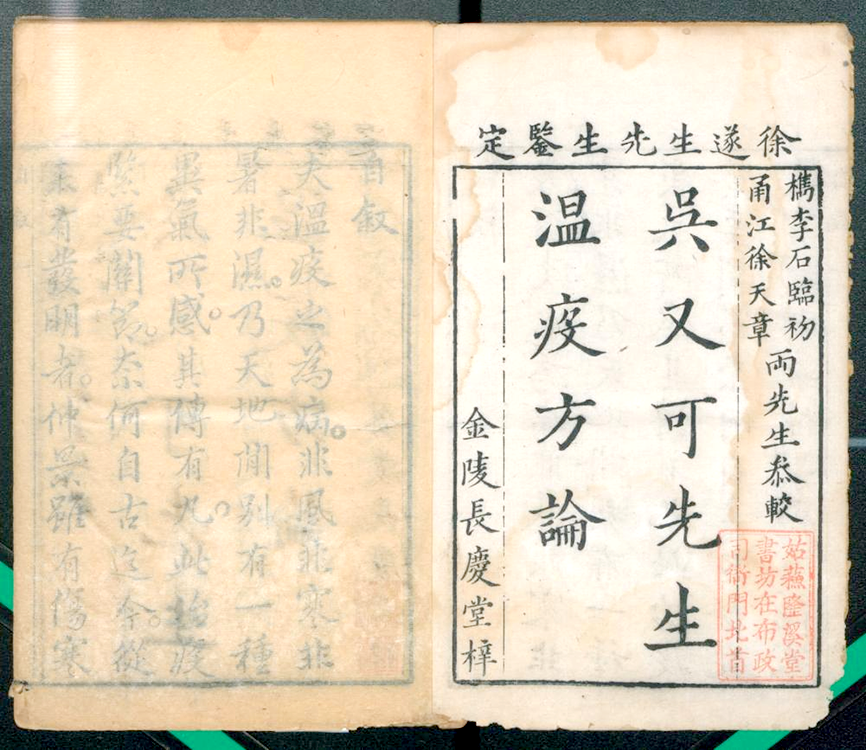 徐遂生先生鑒定
檇李石臨初
甬江徐天章
両先生叅較
吳又可先生
温疫方論
金陵長慶堂梓
姑蘇隆溪堂
書坊在布政
司衙門北首
自叙
夫温疫之為病。非風非寒非
暑非濕。乃天地間别有一種
異氣所感。其傳有九。此治疫
緊要關節。奈何自古迄今。從
未有發明者。仲景雖有傷寒